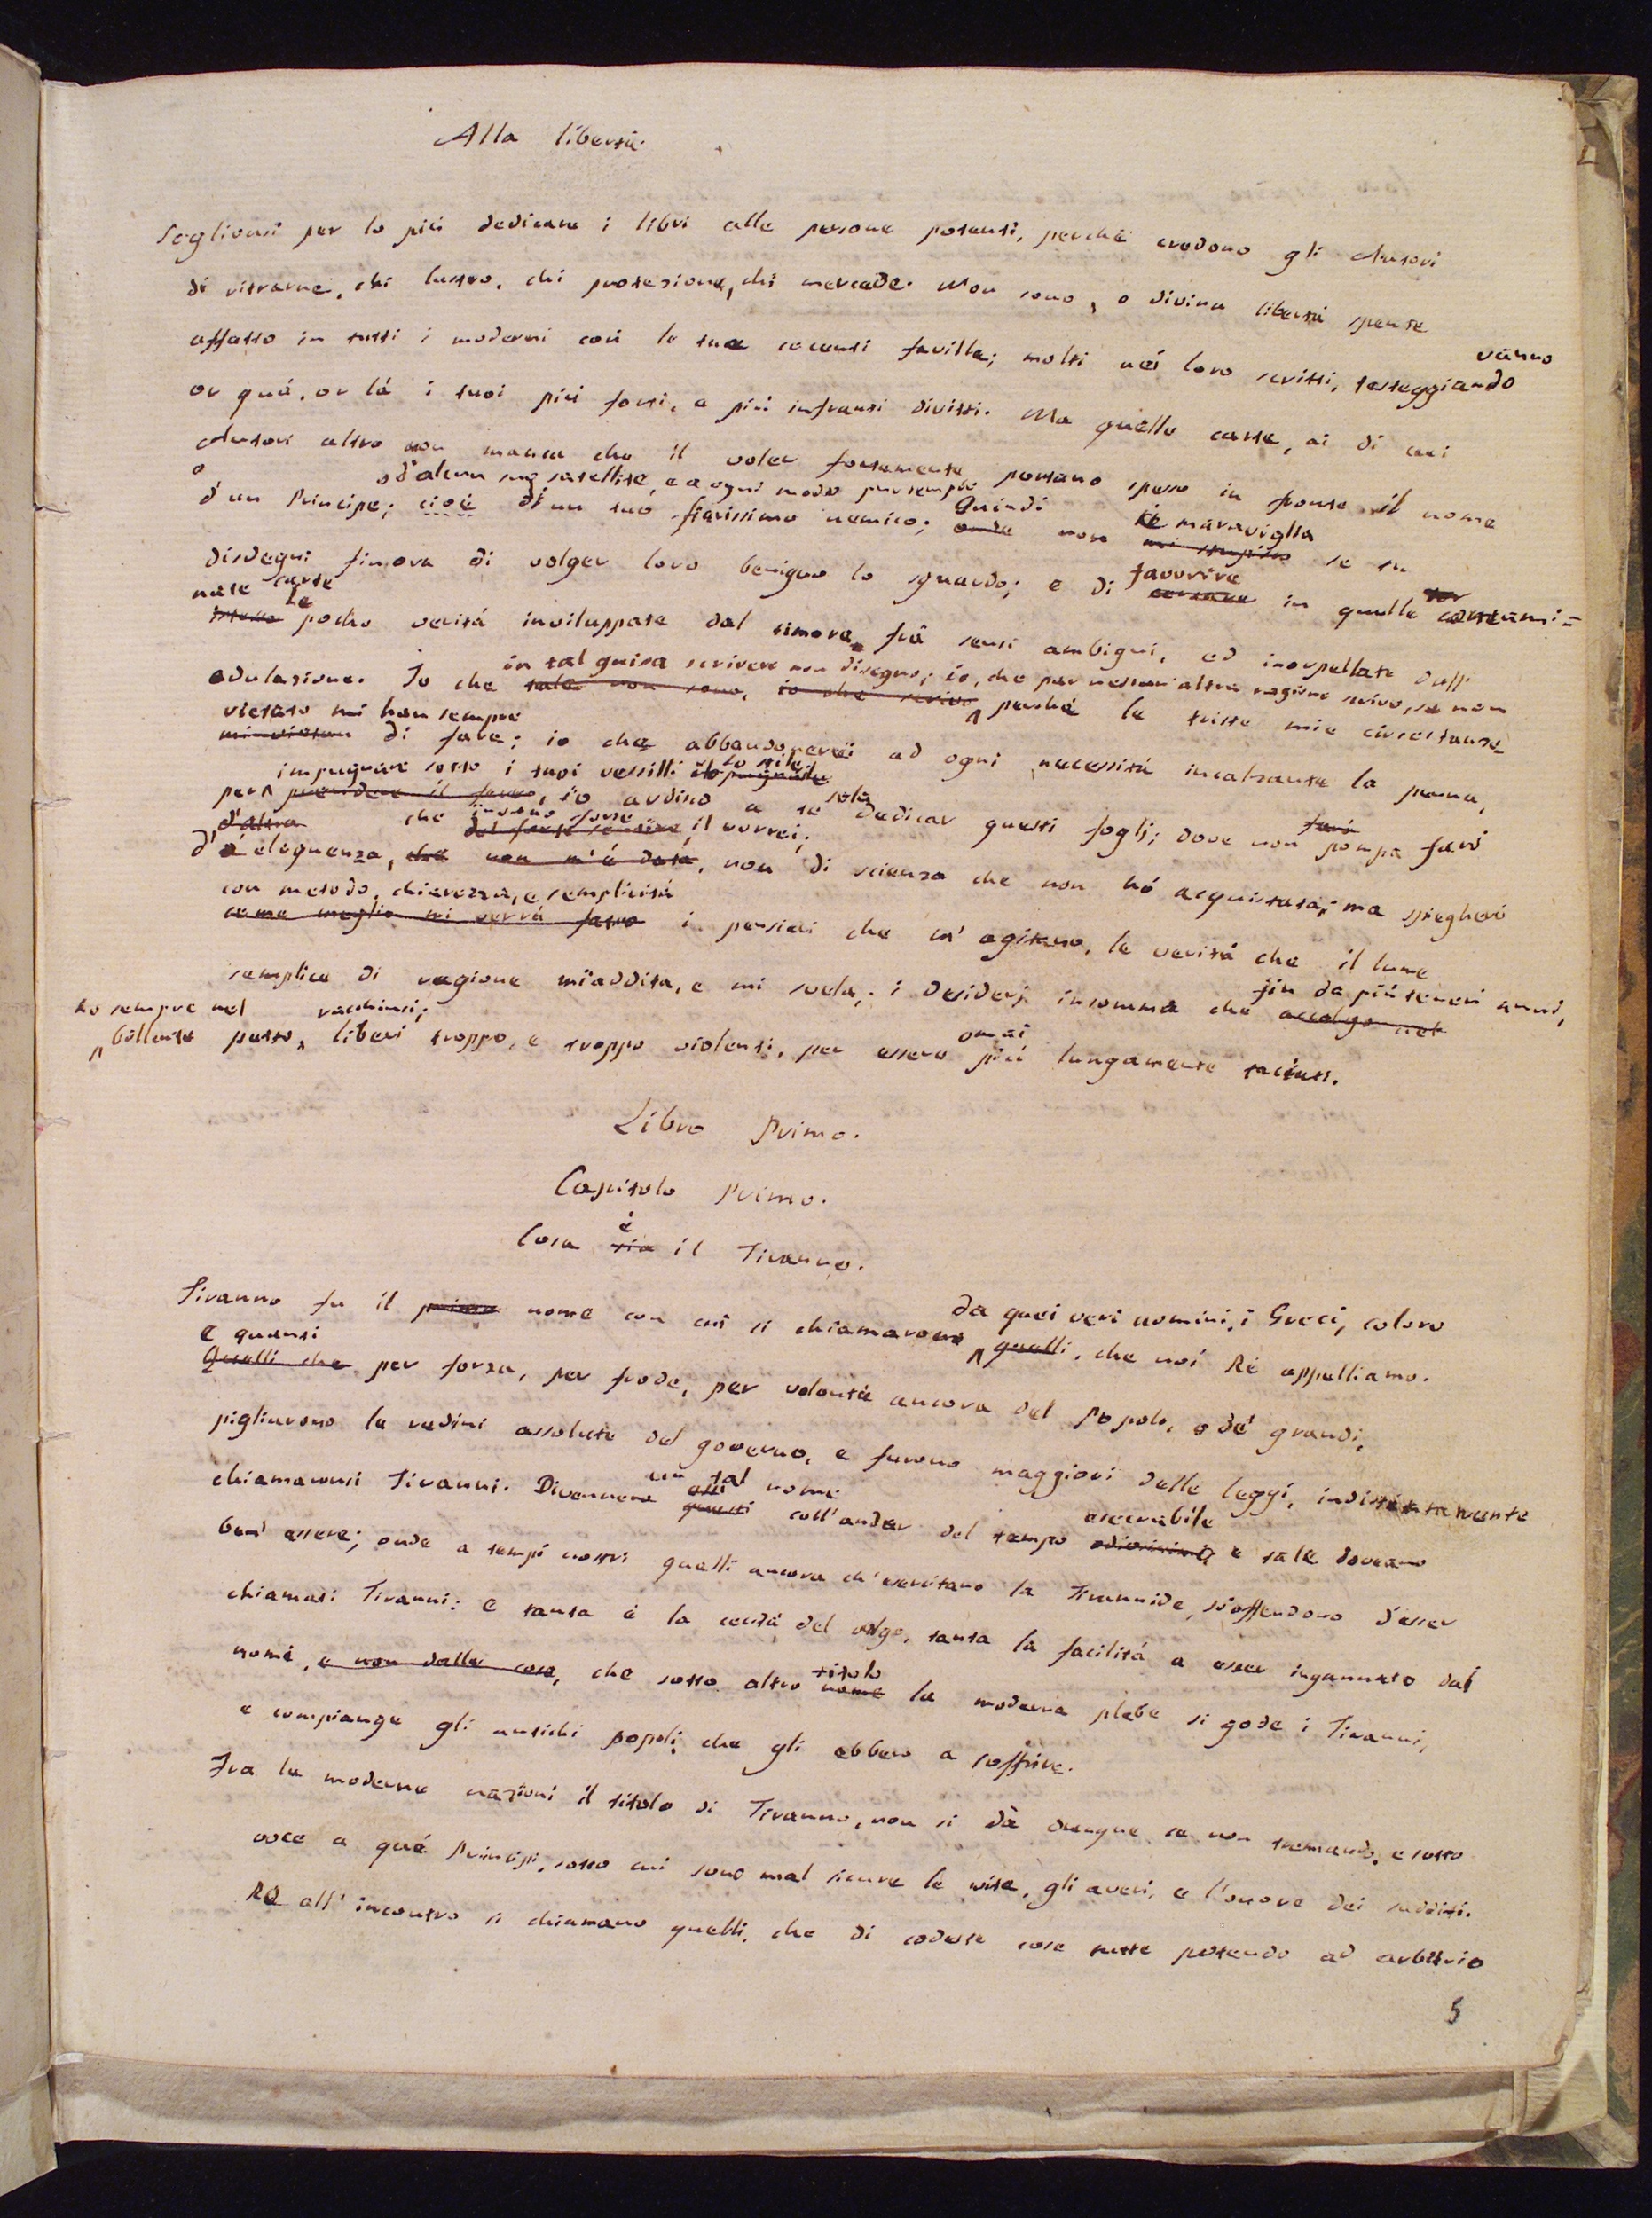 Alla libertà.
Sogliansi per lo più dedicare i libri alle persone potenti, perchè credono gli Autori
di ritrarne, chi lustro, chi protezione, chi mercede. Non sono, o divina libertà spente
affatto in tutti i moderni cori le tue cocenti faville; molti nei loro scritti,
vanno
tasteggiando
or quà, or là i tuoi più forti, e più infranti dirittti. Ma quelle carte, ai di cui
Autori altro non manca che il voler fortemente portano spesso in fronte il nome
o od'alcun suo satellite, e a ogni modo pur sempre Quindi è maraviglia
d'un Principe; cioè d'un suo fierissimo nemico; onde non mi stupisco se tu
disdegni finora di volger loro benigno lo sguardo; e di favorire in quelle contami=
nate carte Le
poche verità inviluppate dal timore frà sensi ambigui, ed inorpellate dall'
in tal guisa scrivere non disegno; io, che per nessun'altra ragione scrivo, se non
adulazione. Io che tale non sono, io che scrivo perchè le triste mie circostanze
vietato mi han sempre
di fare; io che abbandonerei ad ogni necessità incalzante la penna,
impugnare sotto i tuoi vessilli lo stile
per prendere il ferro, io ardisco a te sola dedicar questi foglj; dove non pompa farò
d'altra che invano forse il vorrei;
d'eloquenza, che non m'è data, non di scienza che non hò acquistata; ma spiegherò
con metodo, chiarezza, e semplicità
come meglio mi verrà fatto i pensieri che m'agitano, le verità che il lume
semplice di ragione m'addita, e mi svela; i desiderj insomma che fin da più teneri anni,
accolgo nel
ho sempre nel racchiusi;
bollente petto, liberi troppo, e troppo violenti, per essere omai più lungamente taciuti.
Libro Primo.
Capitolo Primo.
Cosa sia è il Tiranno.
da quei veri uomini, i Greci, coloro
Tiranno fu il primo nome con cui si chiamarono quelli, che noi Rè appelliamo.
E quanti
Quelli che per forza, per frode, per volontà ancora del Popolo, o de' grandi,
pigliarono le redini assolute del governo, e furono maggiori delle leggi, indistintamente
un tal nome
chiamaronsi Tiranni. Divennero questi coll'andar del tempo esecrabile odiosissimi, e tale doveano
ben' essere; onde a tempi nostri quelli ancora ch'esercitano la Tirannide, s'offendono d'esser
chiamati Tiranni: E tanta è la cecità del volgo, tanta la facilità a esser ingannato dai
nomi, e non dalle cose, che sotto altro titolo nome la moderna plebe si gode i Tiranni,
e compiange gli antichi popoli, che gli ebbero a soffrire.
Fra le moderne nazioni il titolo di Tiranno, non si dà dunque se non tremando, e sotto
voce a quê Principi, sotto cui sono mal sicure le vite, gli averi, e l'onore dei sudditi.
Rè all' incontro si chiamano quelli, che di codeste cose tutte potendo ad arbitrio
5